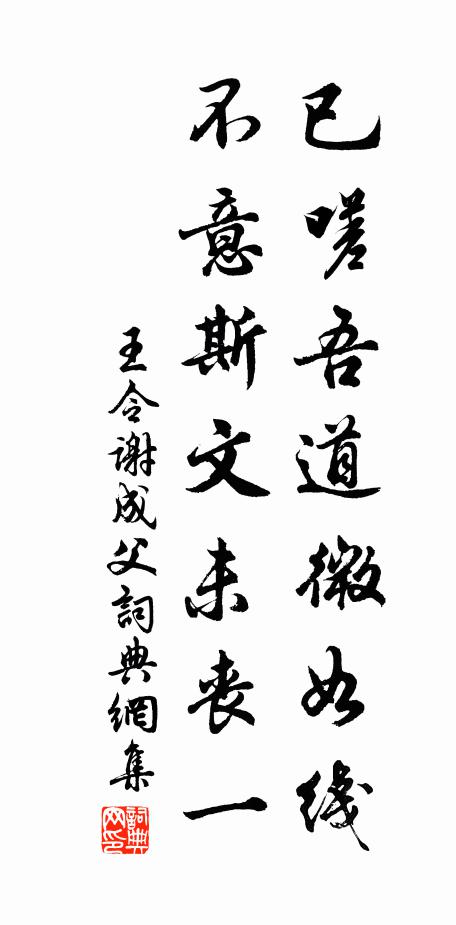 已嗟吾道微如线
不意斯文未丧一
王令谢成父詞典網集
詞典网印